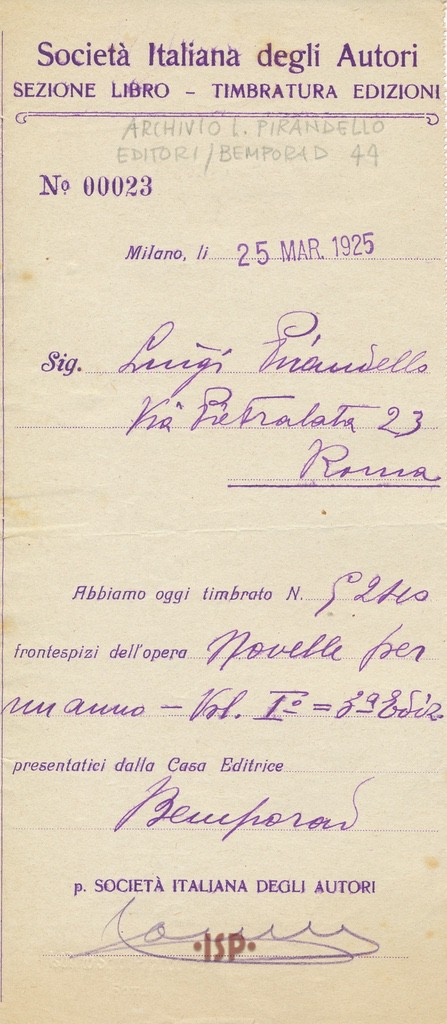 Società Italiana degli Autori
SEZIONE LIBRO – TIMBRATURA EDIZIONI
ARCHIVIO L. PIRANDELLO
EDITORI/BEMPORAD 44
Nº 00023
Milano, li 25 MAR. 1925
Sig. Luigi Pirandello
Via Pietralata 23
Roma
Abbiamo oggi timbrato N.
frontespizi dell'opera Novelle per
un anno – Vol. Iº = 3ª Ediz.
presentatici dalla Casa Editrice
Bemporad
p. SOCIETÀ ITALIANA DEGLI AUTORI
·ISP·